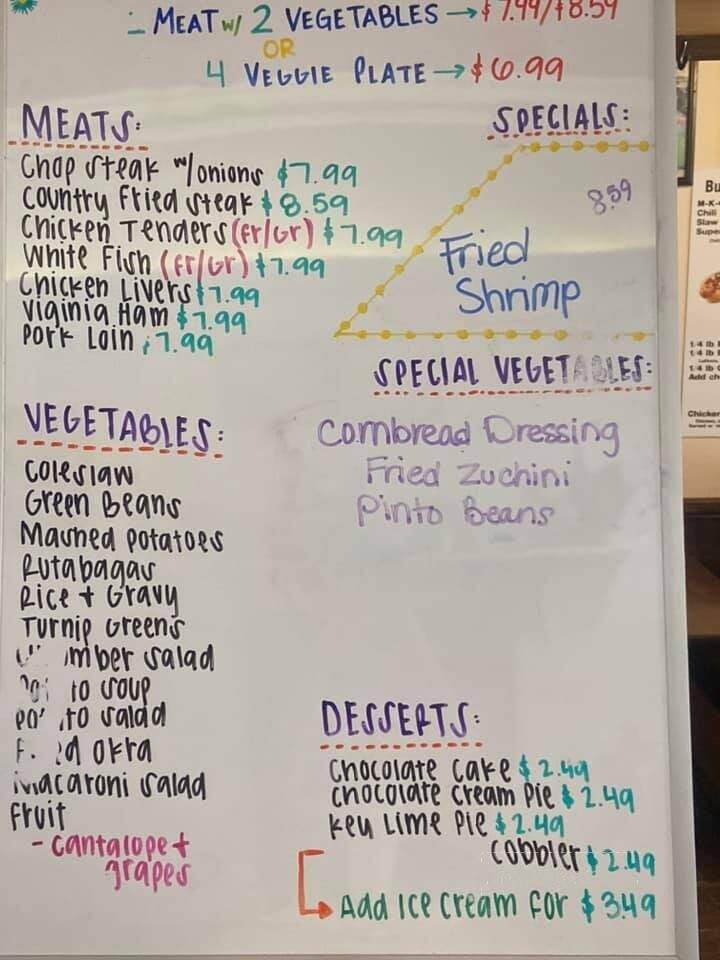 - MEAT w/ 2 VEGETABLES → $7.99/$8.59
OR
4 VEGGIE PLATE → $6.99
MEATS:
Chop Steak w/onions $7.99
Country Fried Steak $8.59
Chicken Tenders (Fr/Gr) $7.99
White Fish (Fr/Gr) $7.99
Chicken Livers $7.99
Viginia Ham $7.99
Pork Loin $7.99
SPECIALS:
8.59
Fried
Shrimp
SPECIAL VEGETABLES:
Cornbread Dressing
Fried Zuchini
Pinto Beans
VEGETABLES:
Coleslaw
Green Beans
Mashed Potatoes
Rutabagas
Rice + Gravy
Turnip Greens
mber Salad
to Soup
Po to Salad
F. d Okra
Macaroni Salad
Fruit
- Cantalope +
Grapes
DESSERTS:
Chocolate Cake $2.49
Chocolate Cream Pie $2.49
Key Lime Pie $2.49
Cobbler $2.49
Add Ice Cream for $3.49
Bu
M-K-
Chili
Slaw
Supe
1/4 lb
1/4 lb
1/4 lb
Add ch
Chicken